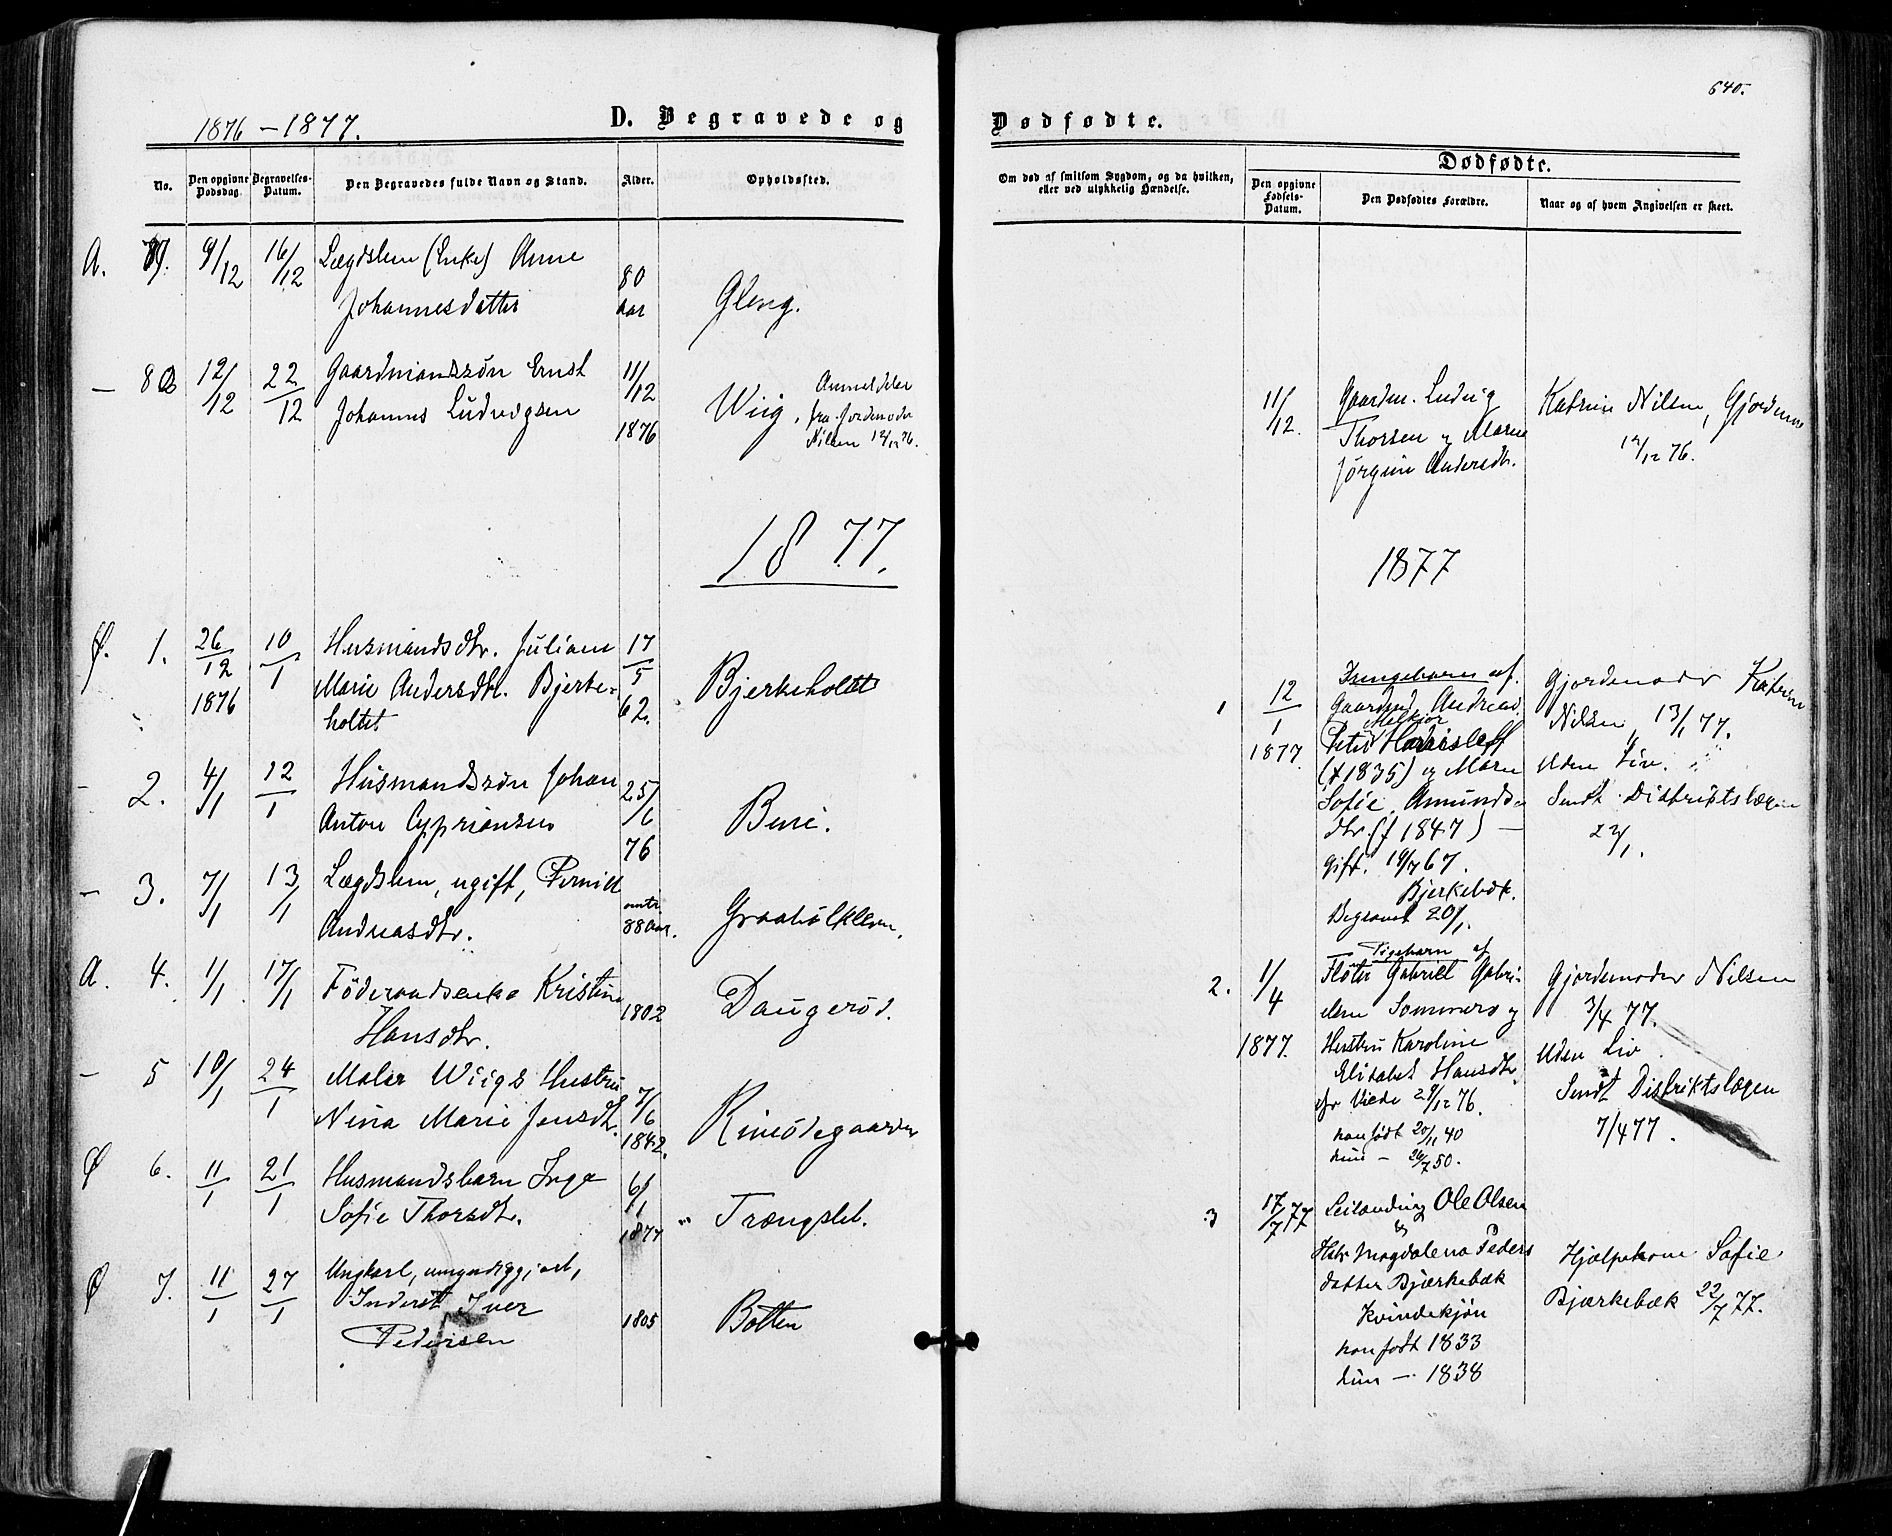 640.
1876 – 1877.
D. Begravede og
Dødfødte.
No.
Den opgivne Dødsdag.
Begravelses-Datum.
Den Begravedes fulde Navn og Stand.
Alder.
Opholdssted.
Om død af smitsom Sygdom, og da hvilken, eller ved ulykkelig Hændelse.
Dødfødte.
Den opgivne Fødsels-Datum.
Den Dødfødtes Forældre.
Naar og af hvem Angivelsen er skeet.
A. 9/12 16/12 Lægdslem (Enke) Anne
Johannesdatter
80 aar
Gleng.
— 80 12/12 22/12 Gaardmandssøn Ernst
Johannes Ludvigsen
11/12 1876
Wiig.
Anmeldelse
fra Jordemoder
Nilsen 12/12 76.
1877.
Ø. 1. 26/12 1876 10/1 Husmandsdtr. Juliane
Marie Andersdtr. Bjerke-
holtet
17/5 62.
Bjerkeholdt
– 2. 4/1 12/1 Husmandssøn Johan
Anton Cypriansen
25/6 76
– 3. 7/1 13/1 Lægdslem, ugift, Pernill
Andreasdtr.
omtr. 88 aar.
A. 4. 1/1 17/1 Føderaadsenke Kristine
Hansdtr.
1802
Daugerød.
– 5 10/1 24/1 Maler Wiigs Hustru
Nina Marie Jensdtr.
7/6 1842.
Ø 6. 11/1 21/1 Husmandsbarn Inga
Sofie Thorsdtr.
6/1 1877
Trængslet.
Ø 7. 11/1 27/1 Ungkarl, umyndiggjort,
Inderst Iver
Pedersen
1805
Botten
11/12. Gaardm. Ludvig
Thorsen og Maren
Jørgine Andersdtr.
Katrine Nilsen, Gjordemo
12/12 76.
1877
1 12/1 1877 Drengebarn af
Gaardmd Andreas
Melkior
Peter
(f 1835) og Maren
Sofie Amunds-
dtr. (f 1847) —
gift. 19/7 67.
Bjerkebæk.
Begravet 20/1.
Gjordemoder Katrine
Nilsen 13/1 77.
Uden Liv.
Sendt Distriktslægen
2. 1/4 1877. Pigebarn af
Fløter Gabriel Gabri-
elsen Sommerø og
Hustru Karoline
Elisabet Hansdtr.
gr Viede 29/12 76.
han født 20/11 40
hun – 26/7 50.
Gjordemoder Nilsen
3/4 77.
Uden Liv.
Sendt Distriktslægen
7/4 77.
3 17/7 77 Leilænding Ole Olsen
og
Hstr Magdalena Peders
datter Bjærkebæk
Kvindekjøn
han født 1833
hun — 1838
Hjælpekone Sofie
Bjærkebæk 22/7 77.